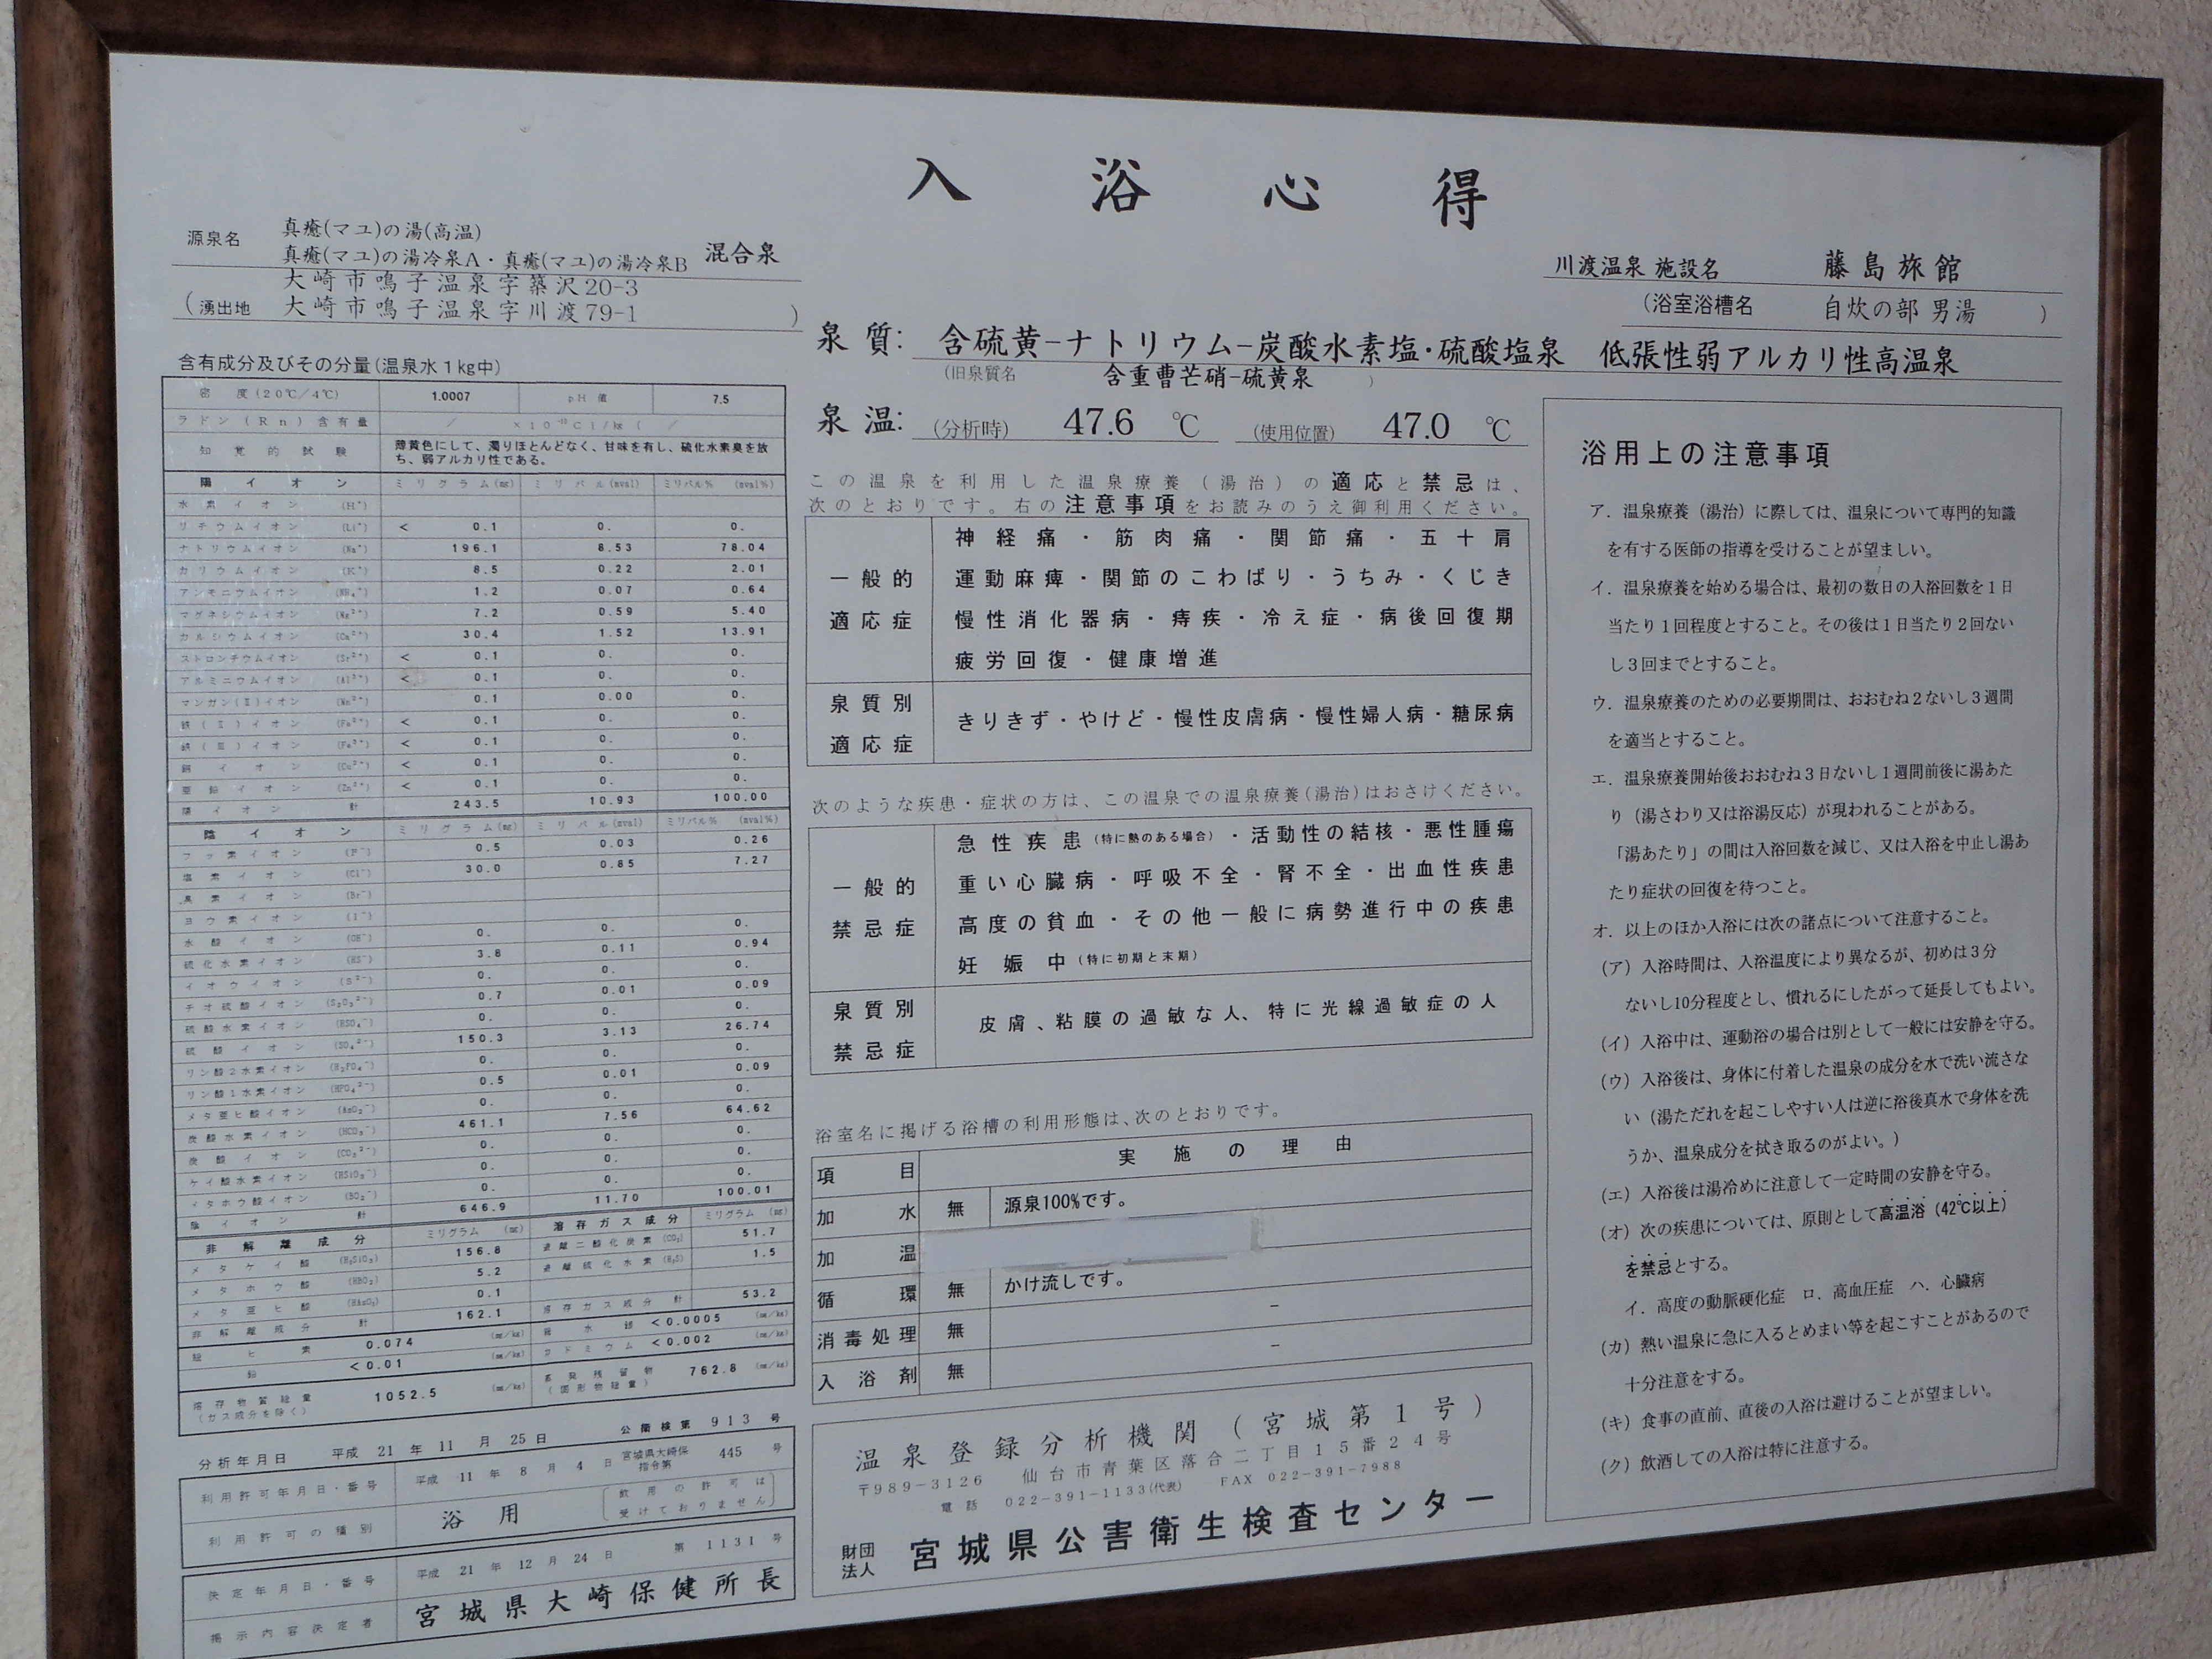 入浴心得
源泉名 真癒(マユ)の湯(高温)
真癒(マユ)の湯冷泉A・真癒(マユ)の湯冷泉B 混合泉
大崎市鳴子温泉字築沢20-3
(湧出地 大崎市鳴子温泉字川渡79-1 )
川渡温泉 施設名 藤島旅館
(浴室浴槽名 自炊の部 男湯 )
泉質: 含硫黄-ナトリウム-炭酸水素塩・硫酸塩泉 低張性弱アルカリ性高温泉
(旧泉質名 含重曹芒硝-硫黄泉 )
泉温: (分析時) 47.6 ℃ (使用位置) 47.0 ℃
含有成分及びその分量(温泉水1kg中)
密度(20℃/4℃) 1.0007 pH値 7.5
ラドン(Rn)含有量 / ×10 Ci/kg ( /
知覚的試験 薄黄色にして、濁りほとんどなく、甘味を有し、硫化水素臭を放
ち、弱アルカリ性である。
陽イオン ミリグラム(mg) ミリバル(mval) ミリバル% (mval%)
水素イオン (H⁺)
リチウムイオン (Li⁺) < 0.1 0. 0.
ナトリウムイオン (Na⁺) 196.1 8.53 78.04
カリウムイオン (K⁺) 8.5 0.22 2.01
アンモニウムイオン (NH₄⁺) 1.2 0.07 0.64
マグネシウムイオン (Mg²⁺) 7.2 0.59 5.40
カルシウムイオン (Ca²⁺) 30.4 1.52 13.91
ストロンチウムイオン (Sr²⁺) < 0.1 0. 0.
アルミニウムイオン (Al³⁺) < 0.1 0. 0.
マンガン(Ⅱ)イオン (Mn²⁺) 0.1 0.00 0.
鉄(Ⅱ)イオン (Fe²⁺) < 0.1 0. 0.
鉄(Ⅲ)イオン (Fe³⁺) < 0.1 0. 0.
銅イオン (Cu²⁺) < 0.1 0. 0.
亜鉛イオン (Zn²⁺) < 0.1 0. 0.
陽イオン計 243.5 10.93 100.00
陰イオン ミリグラム(mg) ミリバル(mval) ミリバル% (mval%)
フッ素イオン (F⁻) 0.5 0.03 0.26
塩素イオン (Cl⁻) 30.0 0.85 7.27
臭素イオン (Br⁻)
ヨウ素イオン (I⁻)
水酸イオン (OH⁻) 0. 0. 0.
硫化水素イオン (HS⁻) 3.8 0.11 0.94
イオウイオン (S²⁻) 0. 0. 0.
チオ硫酸イオン (S₂O₃²⁻) 0.7 0.01 0.09
硫酸水素イオン (HSO₄⁻) 0. 0. 0.
硫酸イオン (SO₄²⁻) 150.3 3.13 26.74
リン酸2水素イオン (H₂PO₄⁻) 0. 0. 0.
リン酸1水素イオン (HPO₄²⁻) 0.5 0.01 0.09
メタ亜ヒ酸イオン (AsO₂⁻) 0. 0. 0.
炭酸水素イオン (HCO₃⁻) 461.1 7.56 64.62
炭酸イオン (CO₃²⁻) 0. 0. 0.
ケイ酸水素イオン (HSiO₃⁻) 0. 0. 0.
メタホウ酸イオン (BO₂⁻) 0. 0. 0.
陰イオン計 646.9 11.70 100.01
非解離成分 ミリグラム (mg) 溶存ガス成分 ミリグラム (mg)
メタケイ酸 (H₂SiO₃) 156.8 遊離二酸化炭素 (CO₂) 51.7
メタホウ酸 (HBO₂) 5.2 遊離硫化水素 (H₂S) 1.5
メタ亜ヒ酸 (HAsO₂) 0.1
非解離成分計 162.1 溶存ガス成分計 53.2
総ヒ素 0.074 (mg/kg) 総水銀 <0.0005 (mg/kg)
鉛 <0.01 (mg/kg) カドミウム <0.002 (mg/kg)
溶存物質総量
(ガス成分を除く) 1052.5 (mg/kg) 蒸発残留物
(固形物総量) 762.8 (mg/kg)
分析年月日 平成 21 年 11 月 25 日 公衛検第 913 号
利用許可年月日・番号 平成 11 年 8 月 4 日 宮城県大崎保指令第 445 号
利用許可の種別 浴用 (飲用の許可は
受けておりません)
決定年月日・番号 平成 21 年 12 月 24 日 第 1131 号
掲示内容決定者 宮城県大崎保健所長
この温泉を利用した温泉療養(湯治)の適応と禁忌は、
次のとおりです。右の注意事項をお読みのうえ御利用ください。
一般的適応症
神経痛・筋肉痛・関節痛・五十肩
運動麻痺・関節のこわばり・うちみ・くじき
慢性消化器病・痔疾・冷え症・病後回復期
疲労回復・健康増進
泉質別適応症
きりきず・やけど・慢性皮膚病・慢性婦人病・糖尿病
次のような疾患・症状の方は、この温泉での温泉療養(湯治)はおさけください。
一般的禁忌症
急性疾患(特に熱のある場合)・活動性の結核・悪性腫瘍
重い心臓病・呼吸不全・腎不全・出血性疾患
高度の貧血・その他一般に病勢進行中の疾患
妊娠中(特に初期と末期)
泉質別禁忌症
皮膚、粘膜の過敏な人、特に光線過敏症の人
浴室名に掲げる浴槽の利用形態は、次のとおりです。
項目 実施の理由
加水 無 源泉100%です。
加温
循環 無 かけ流しです。
消毒処理 無 −
入浴剤 無 −
温泉登録分析機関(宮城第1号)
〒989-3126 仙台市青葉区落合二丁目15番24号
電話 022-391-1133(代表) FAX 022-391-7988
財団法人 宮城県公害衛生検査センター
浴用上の注意事項
ア．温泉療養（湯治）に際しては、温泉について専門的知識
を有する医師の指導を受けることが望ましい。
イ．温泉療養を始める場合は、最初の数日の入浴回数を1日
当たり1回程度とすること。その後は1日当たり2回ない
し3回までとすること。
ウ．温泉療養のための必要期間は、おおむね2ないし3週間
を適当とすること。
エ．温泉療養開始後おおむね3日ないし1週間前後に湯あた
り（湯さわり又は浴湯反応）が現われることがある。
「湯あたり」の間は入浴回数を減じ、又は入浴を中止し湯あ
たり症状の回復を待つこと。
オ．以上のほか入浴には次の諸点について注意すること。
(ア) 入浴時間は、入浴温度により異なるが、初めは3分
ないし10分程度とし、慣れるにしたがって延長してもよい。
(イ) 入浴中は、運動浴の場合は別として一般には安静を守る。
(ウ) 入浴後は、身体に付着した温泉の成分を水で洗い流さな
い（湯ただれを起こしやすい人は逆に浴後真水で身体を洗
うか、温泉成分を拭き取るのがよい。）
(エ) 入浴後は湯冷めに注意して一定時間の安静を守る。
(オ) 次の疾患については、原則として高温浴（42℃以上）
を禁忌とする。
イ．高度の動脈硬化症 ロ．高血圧症 ハ．心臓病
(カ) 熱い温泉に急に入るとめまい等を起こすことがあるので
十分注意をする。
(キ) 食事の直前、直後の入浴は避けることが望ましい。
(ク) 飲酒しての入浴は特に注意する。